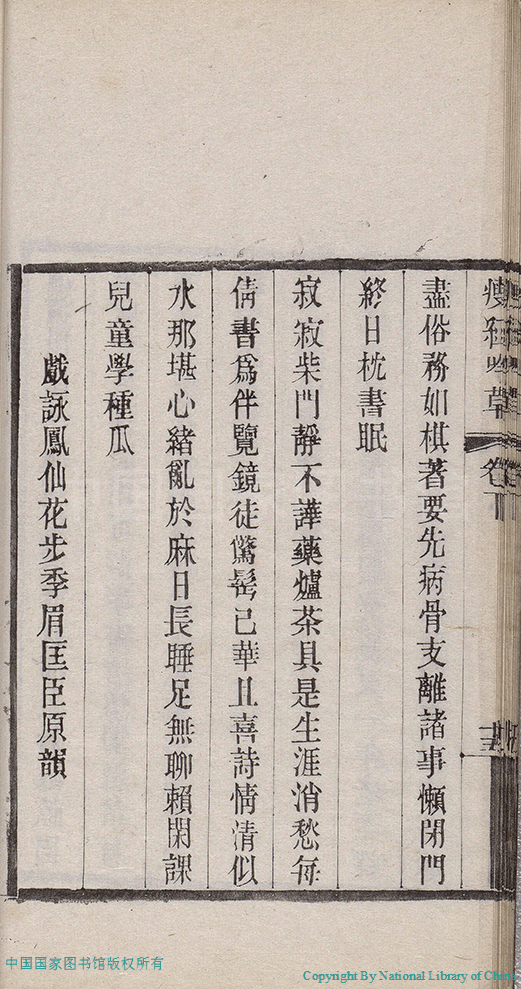 盡俗務如棋著要先病骨支離諸事懶閉門
終日枕書眠
寂寂柴門靜不譁藥爐茶具是生涯消愁每
倩書爲伴覽鏡徒驚髩已華且喜詩情清似
水那堪心緒亂於麻日長睡足無聊賴閑課
兒童學種瓜
戲詠鳳仙花步季眉匡臣原韻
卷下
中国国家图书馆版权所有
Copyright By National Library of China